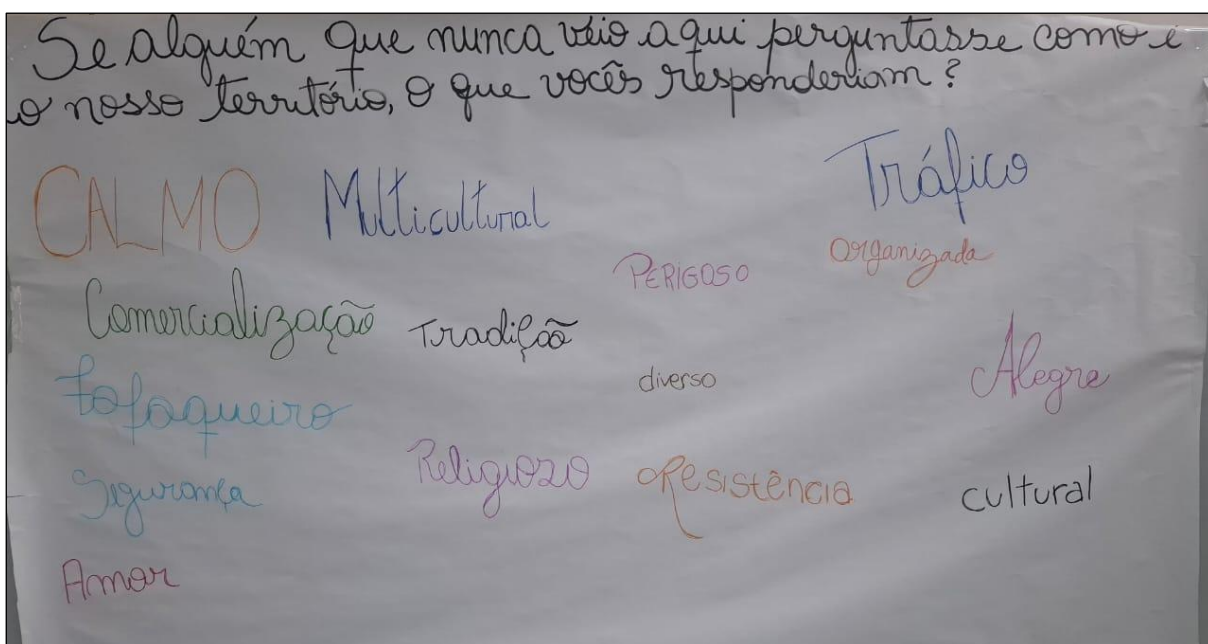 Se alguém que nunca veio aqui perguntasse como é
o nosso território, o que vocês responderiam?
CALMO Multicultural Tráfico
PERIGOSO Organizada
Comercialização Tradição
diverso Alegre
Fofoqueiro
Religiozo Resistência cultural
Segurança
Amor